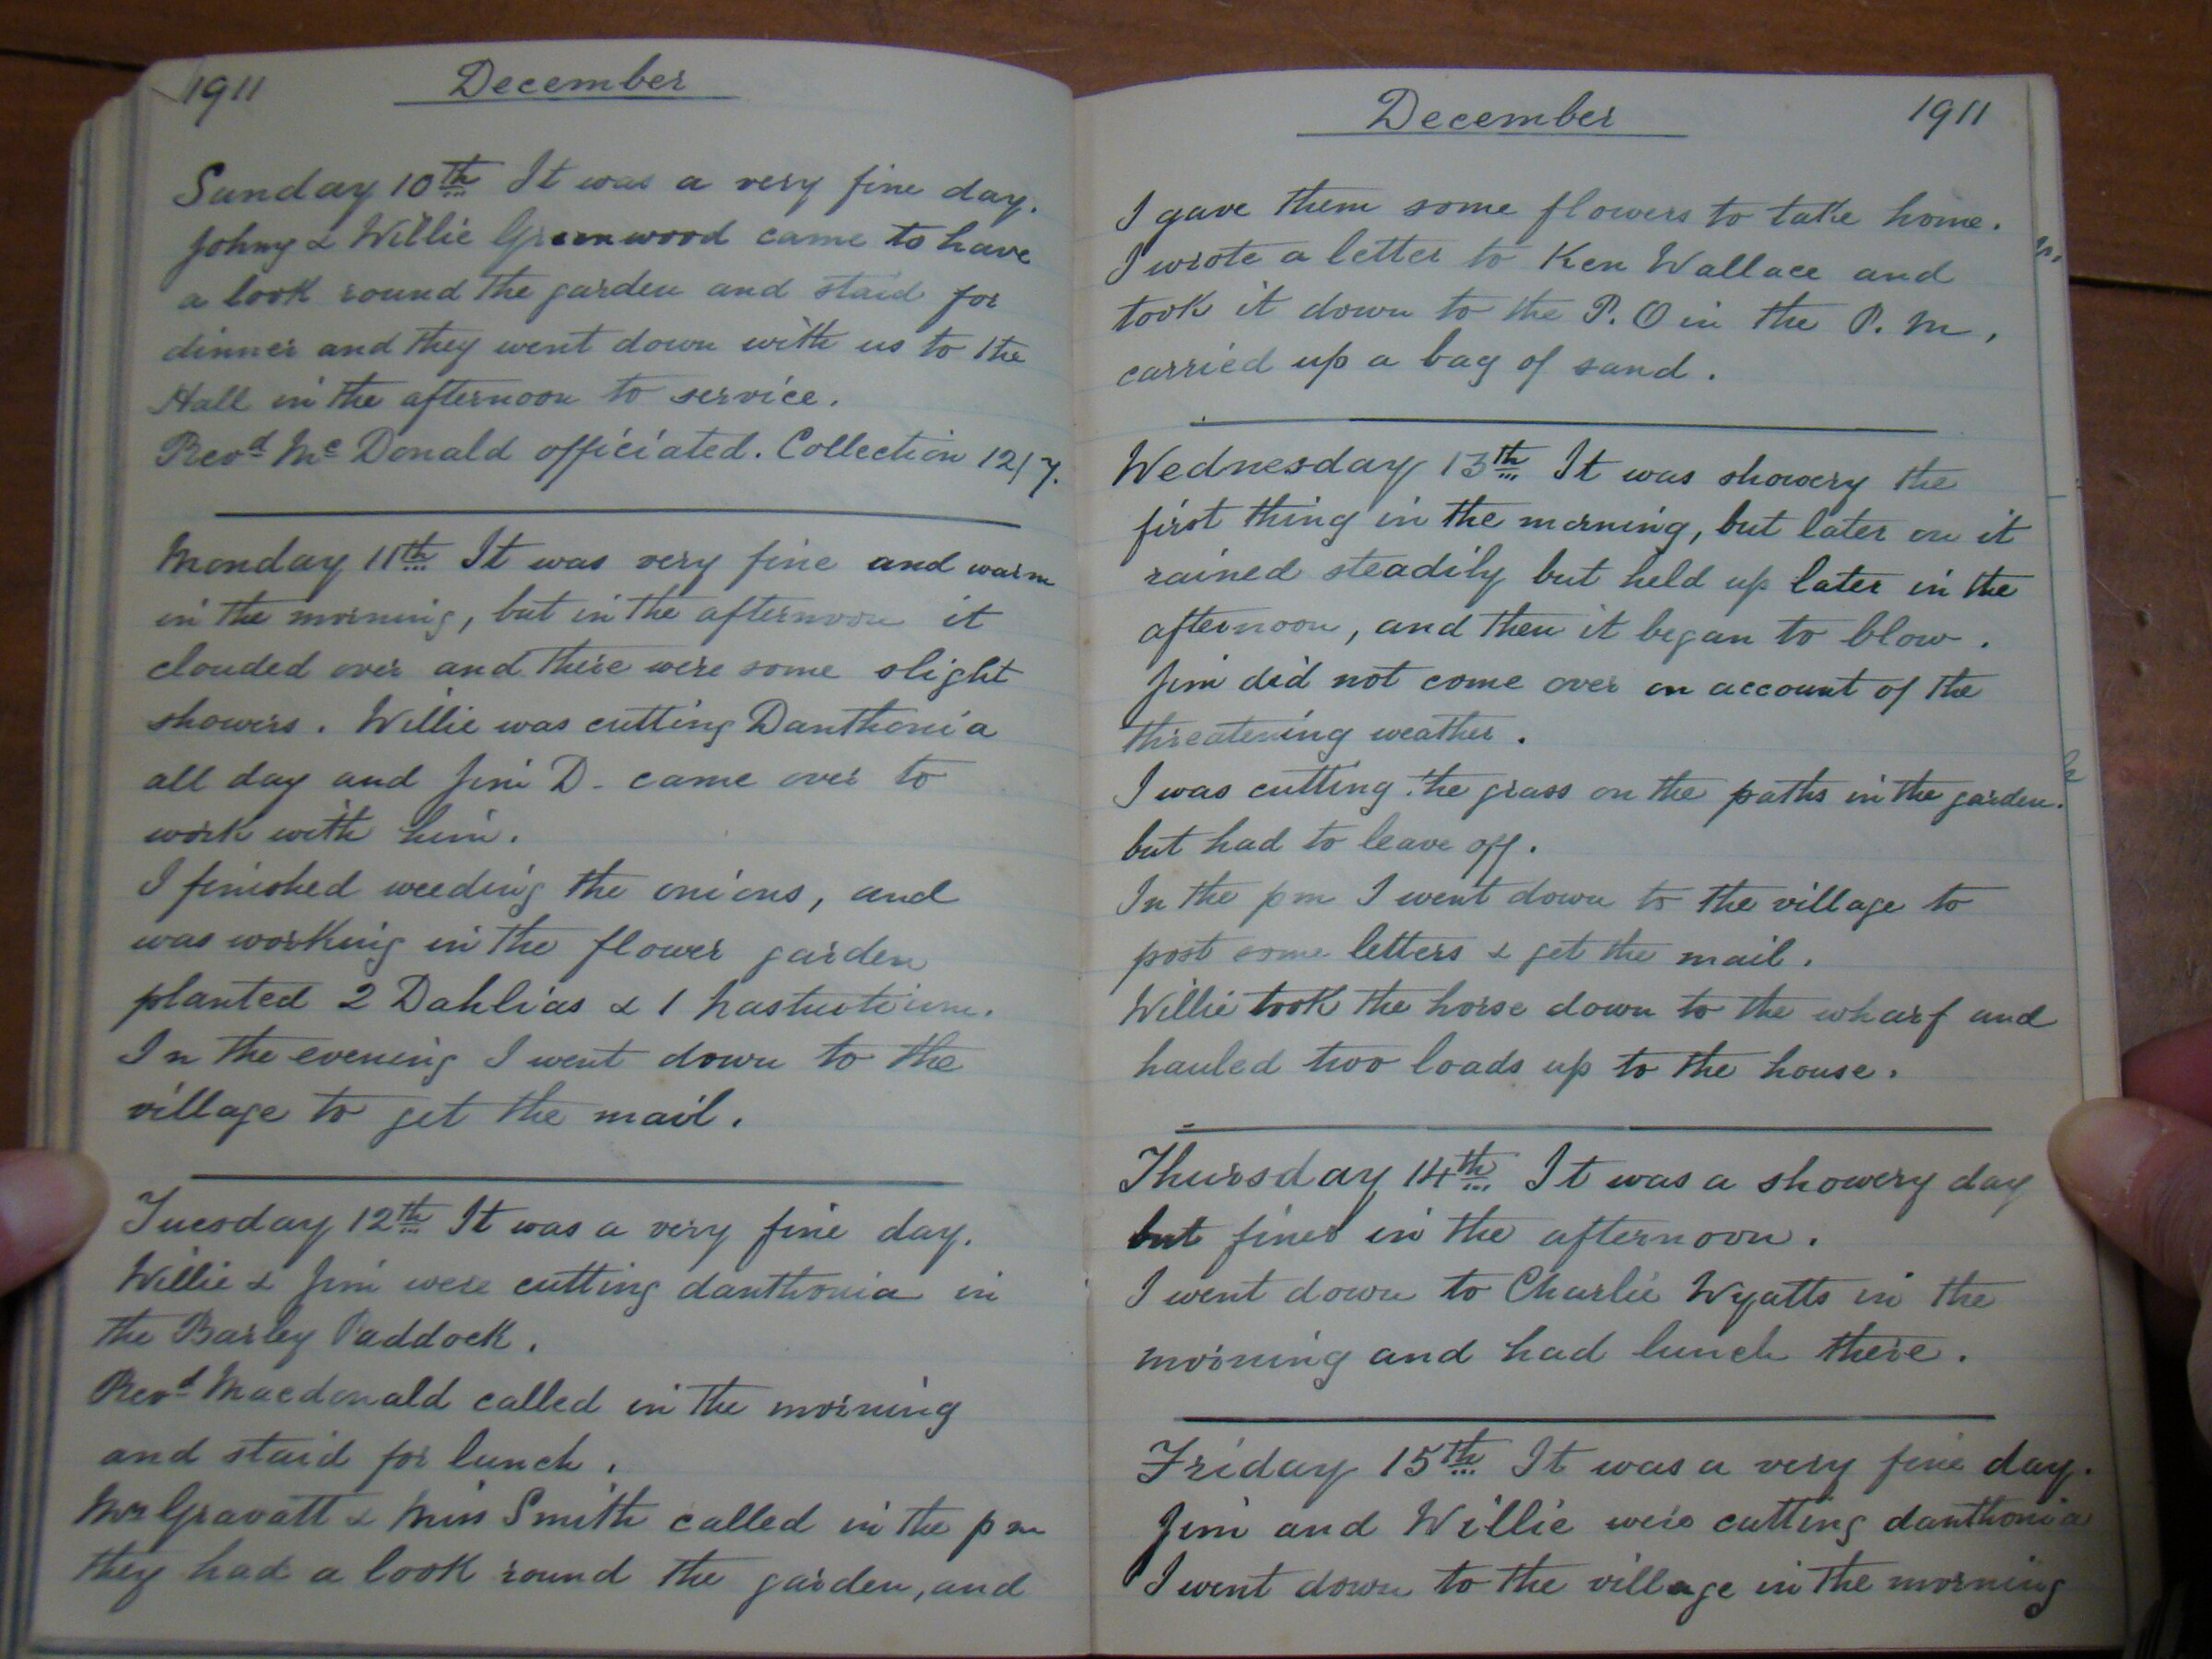 1911 December
Sunday 10th It was a very fine day.
Johny & Willie Greenwood came to have
a look round the garden and staid for
dinner and they went down with us to the
Hall in the afternoon to service.
Revd Mc Donald officiated. Collection 12/7.
Monday 11th It was very fine and warm
in the morning, but in the afternoon it
clouded over and there were some slight
showers. Willie was cutting Danthonia
all day and Jim D- came over to
work with him.
I finished weeding the onions, and
was working in the flower garden
planted 2 Dahlias & 1 
In the evening I went down to the
village to get the mail.
Tuesday 12th It was a very fine day.
Willie & Jim were cutting danthonia in
the Barley Paddock.
Revd Macdonald called in the morning
and staid for lunch.
Mr Gravatt & Miss Smith called in the pm
they had a look round the garden, and
December 1911
I gave them some flowers to take home.
I wrote a letter to Ken Wallace and
took it down to the P. O in the P. M,
carried up a bag of sand.
Wednesday 13th It was showery the
first thing in the morning, but later on it
rained steadily but held up later in the
afternoon, and then it began to blow.
Jim did not come over on account of the
threatening weather.
I was cutting the grass on the paths in the garden.
but had to leave off.
In the pm I went down to the village to
post some letters & get the mail.
Willie took the horse down to the wharf and
hauled two loads up to the house.
Thursday 14th It was a showery day
but finer in the afternoon.
I went down to Charlie Wyatts in the
morning and had lunch there.
Friday 15th It was a very fine day.
Jim and Willie were cutting danthonia
I went down to the village in the morning